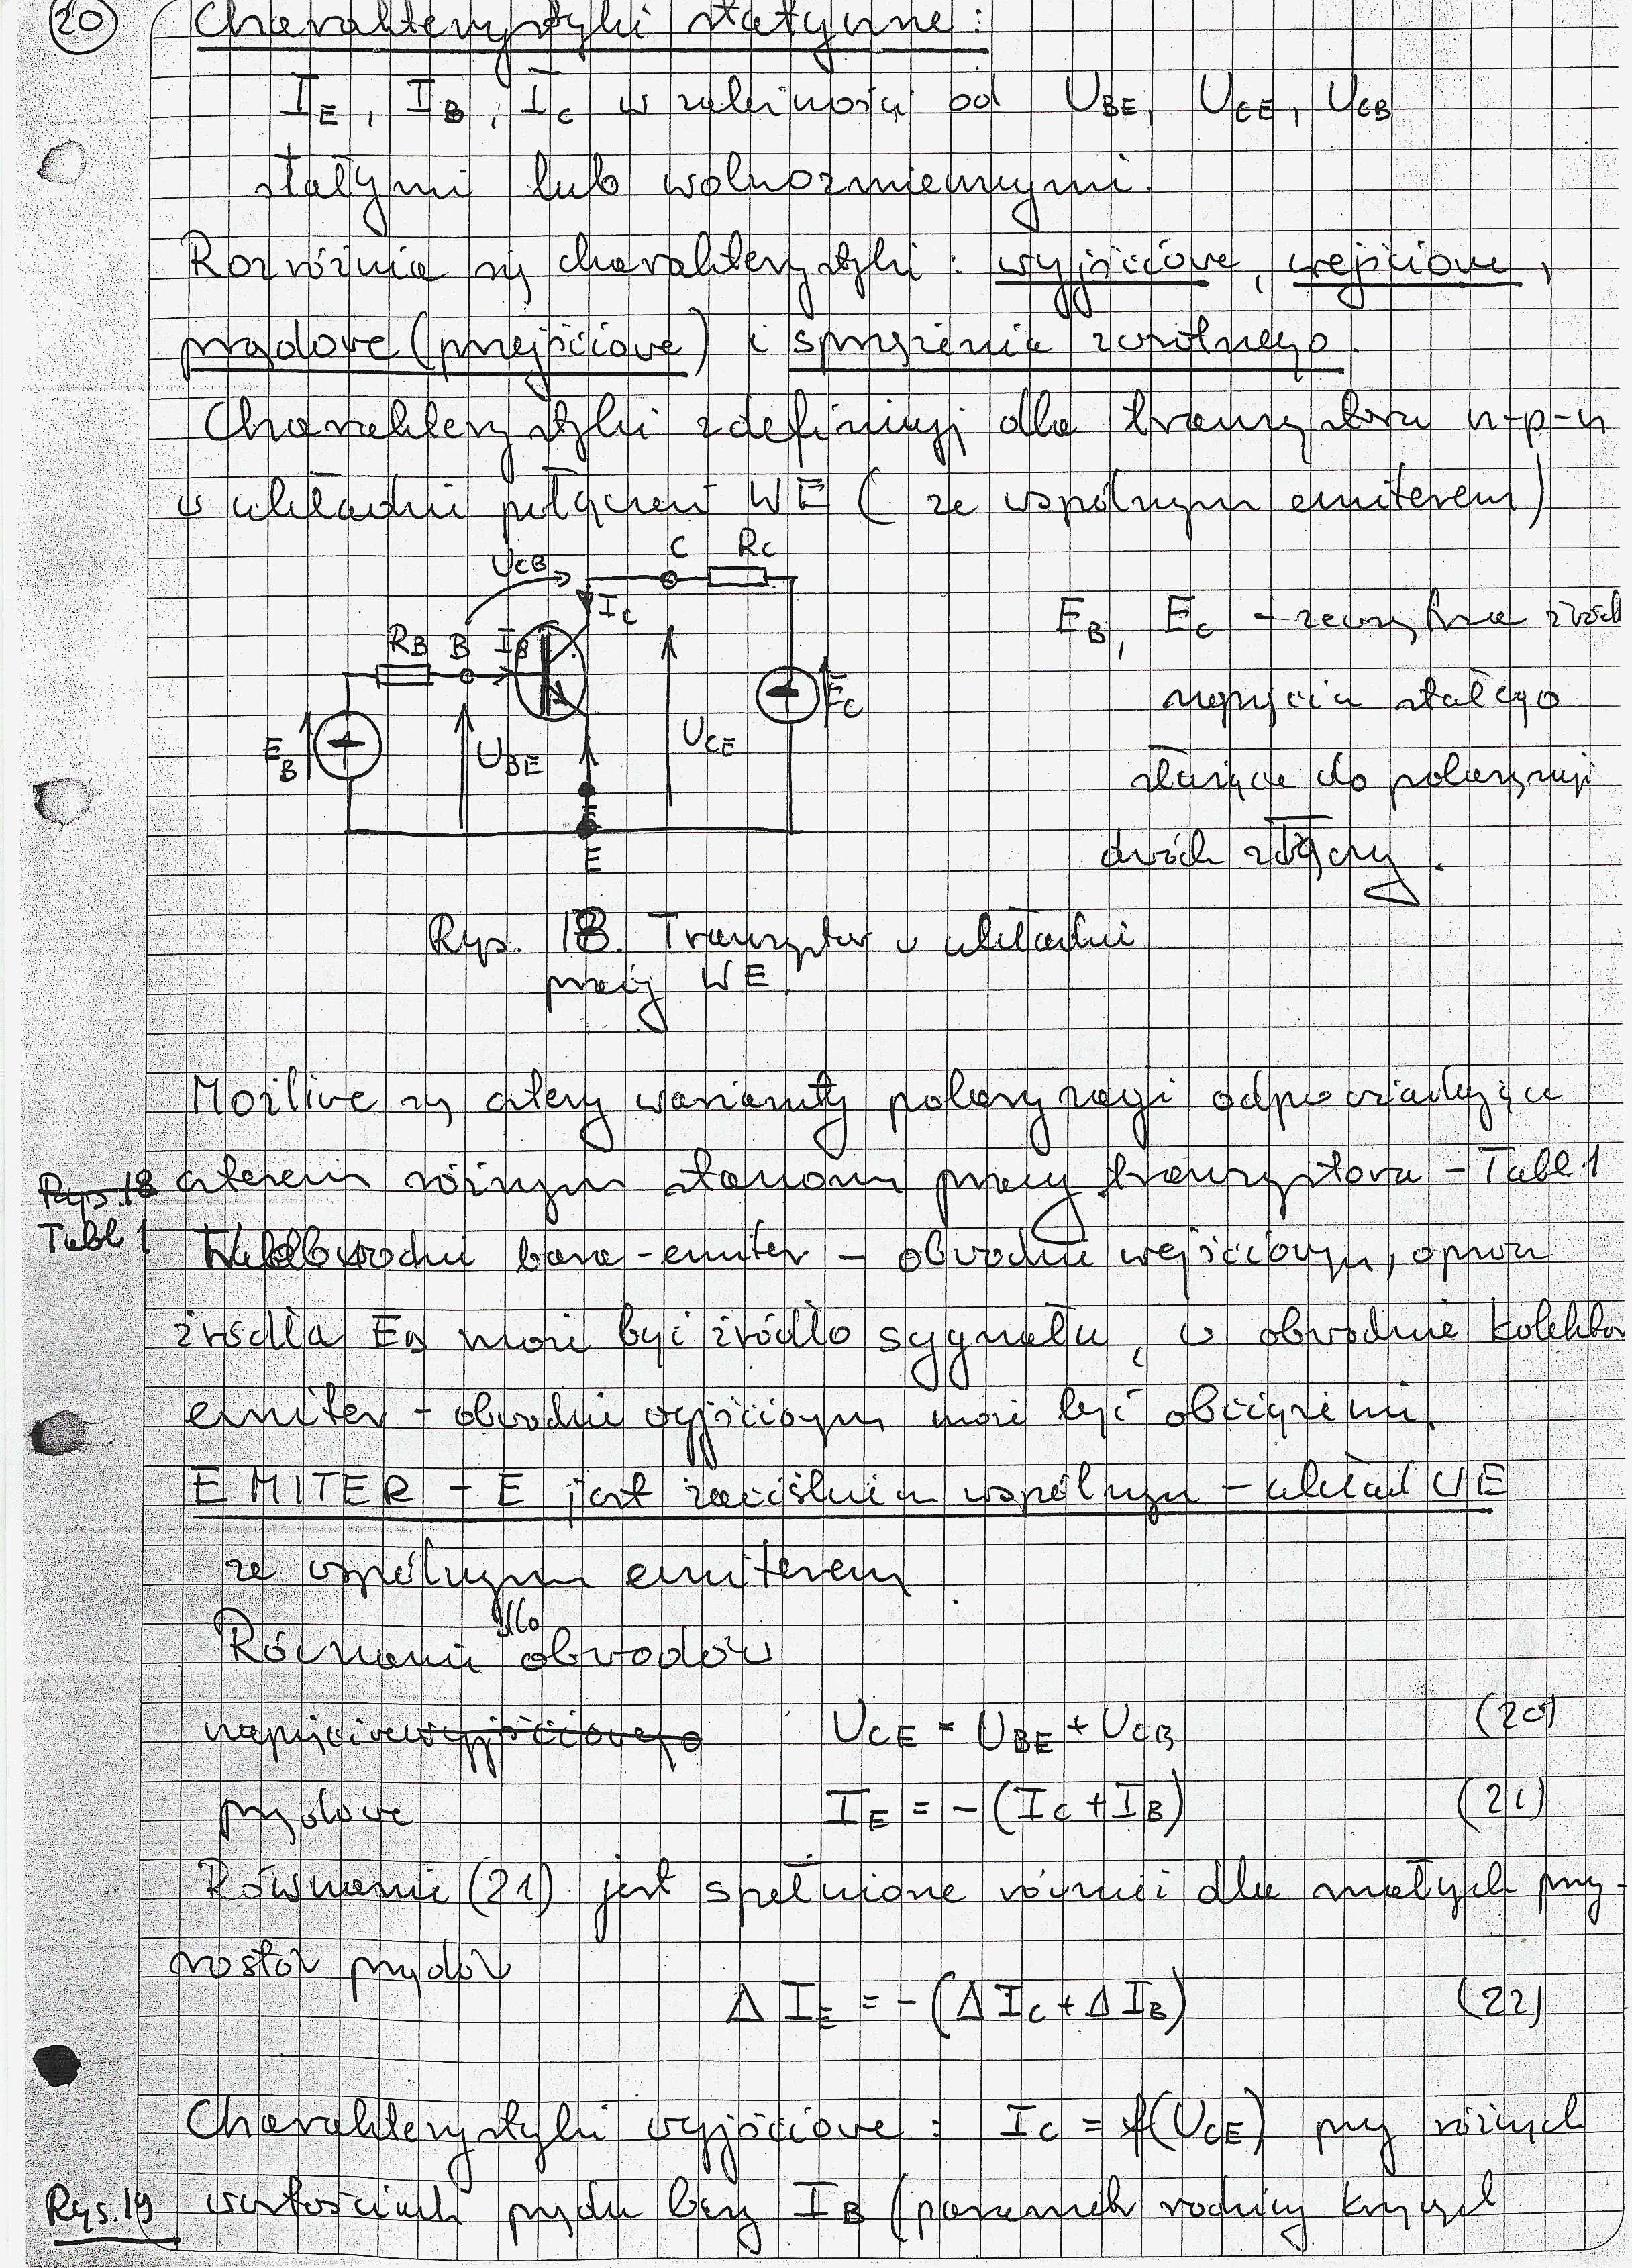 20
Charakterystyki statyczne:
I_E, I_B, I_C w zależności od U_BE, U_CE, U_CB
stałymi lub wolnozmiennymi.
Rozróżnia się charakterystyki: wyjściowe, wejściowe,
prądowe (przejściowe) i sprzężenia zwrotnego.
Charakterystyki zdefiniuję dla tranzystora n-p-n
w układzie połączeń WE (ze wspólnym emiterem)
U_CB C R_C
I_C
R_B B I_B
E_B U_BE U_CE E_C
E
E_B, E_C – zewnętrzne źródła
napięcia stałego
służące do polaryzacji
dwóch złączy.
Rys. 18. Tranzystor w układzie
pracy WE.
Możliwe są cztery warianty polaryzacji odpowiadające
Rys. 18 czterem różnym stanom pracy tranzystora – Tabl. 1
Tabl 1 W obwodzie baza-emiter – obwodzie wejściowym, oprócz
źródła E_B może być źródło sygnału, w obwodzie kolektor
emiter – obwodzie wyjściowym może być obciążenie.
EMITER – E jest zaciskiem wspólnym – układ WE
ze wspólnym emiterem.
Równanie dla obwodów
napięciowe wyjściowego U_CE = U_BE + U_CB (20)
prądowe I_E = – (I_C + I_B) (21)
Równanie (21) jest spełnione również dla małych przy-
rostów prądów
Δ I_E = – (Δ I_C + Δ I_B) (22)
Charakterystyki wyjściowe: I_C = f(U_CE) przy różnych
Rys. 19 wartościach prądu bazy I_B (parametr rodziny krzywych